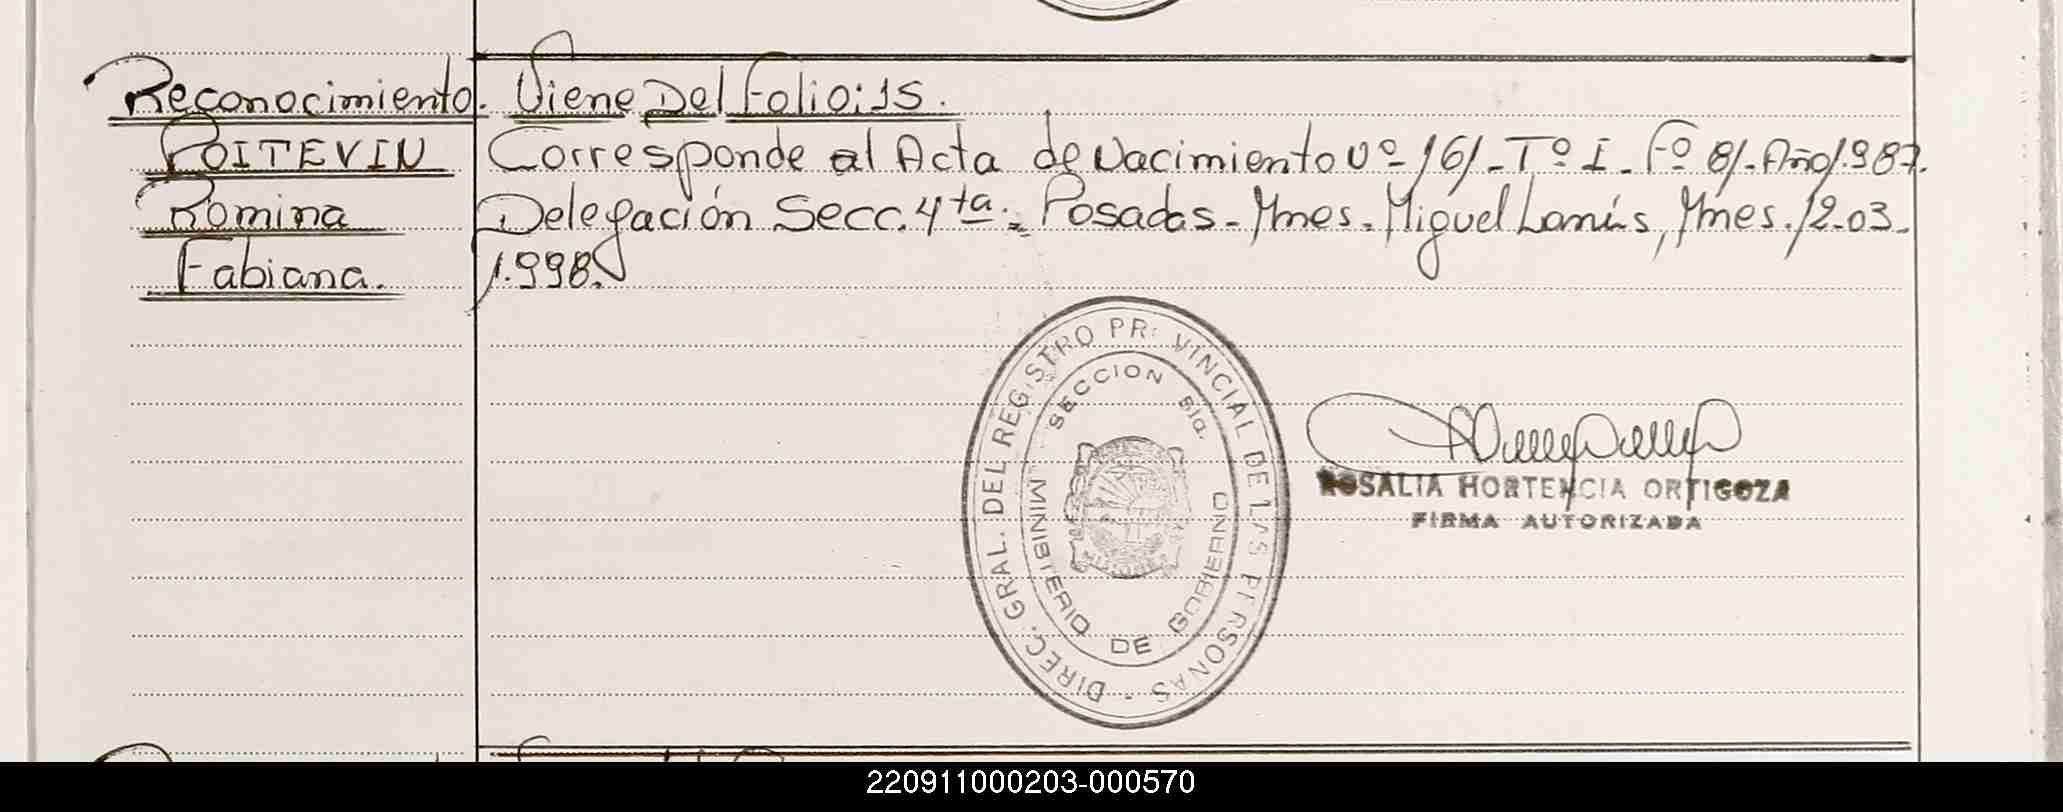 Reconocimiento. Viene Del Folio: 15.
POITEVIN Corresponde al Acta de Nacimiento Nº 161-Tº I-Fº 81-Año 1.987.
Romina Delegación Secc. 4ta.= Posadas-Mnes. Miguel Lanús, Mnes. 12-03-
Fabiana. 1.998.
DIREC. GRAL. DEL REGISTRO PR. VINCIAL DE LAS PERSONAS -
SECCION 5ta.
MINISTERIO DE GOBIERNO
ROSALIA HORTENCIA ORTIGOZA
FIRMA AUTORIZADA
220911000203-000570